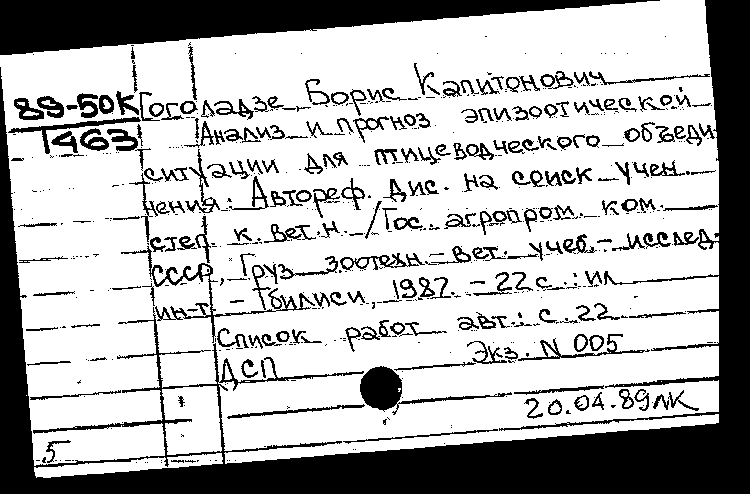 89-50К Гоголадзе, Борис Капитонович
1463 Анализ и прогноз эпизоотической
ситуации для птицеводческого объеди-
нения: Автореф. дис. на соиск учен.
степ к. вет. н. / Гос. агропром. ком.
СССР, Груз зоотехн.-вет. учеб.-исслед.
ин-т. - Тбилиси, 1987. - 22 с.: ил
Список работ авт.: с. 22
ДСП Экз. N 005
20.04.89 ЛК
5